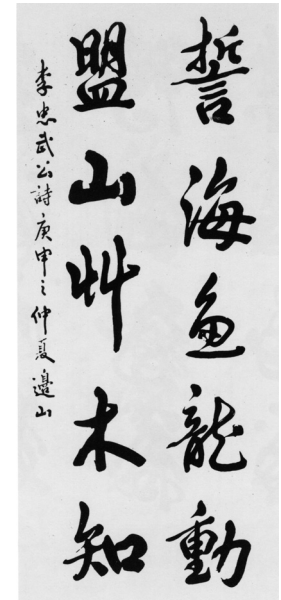 誓海魚龍動
盟山艸木知
李忠武公詩庚申之仲夏邊山